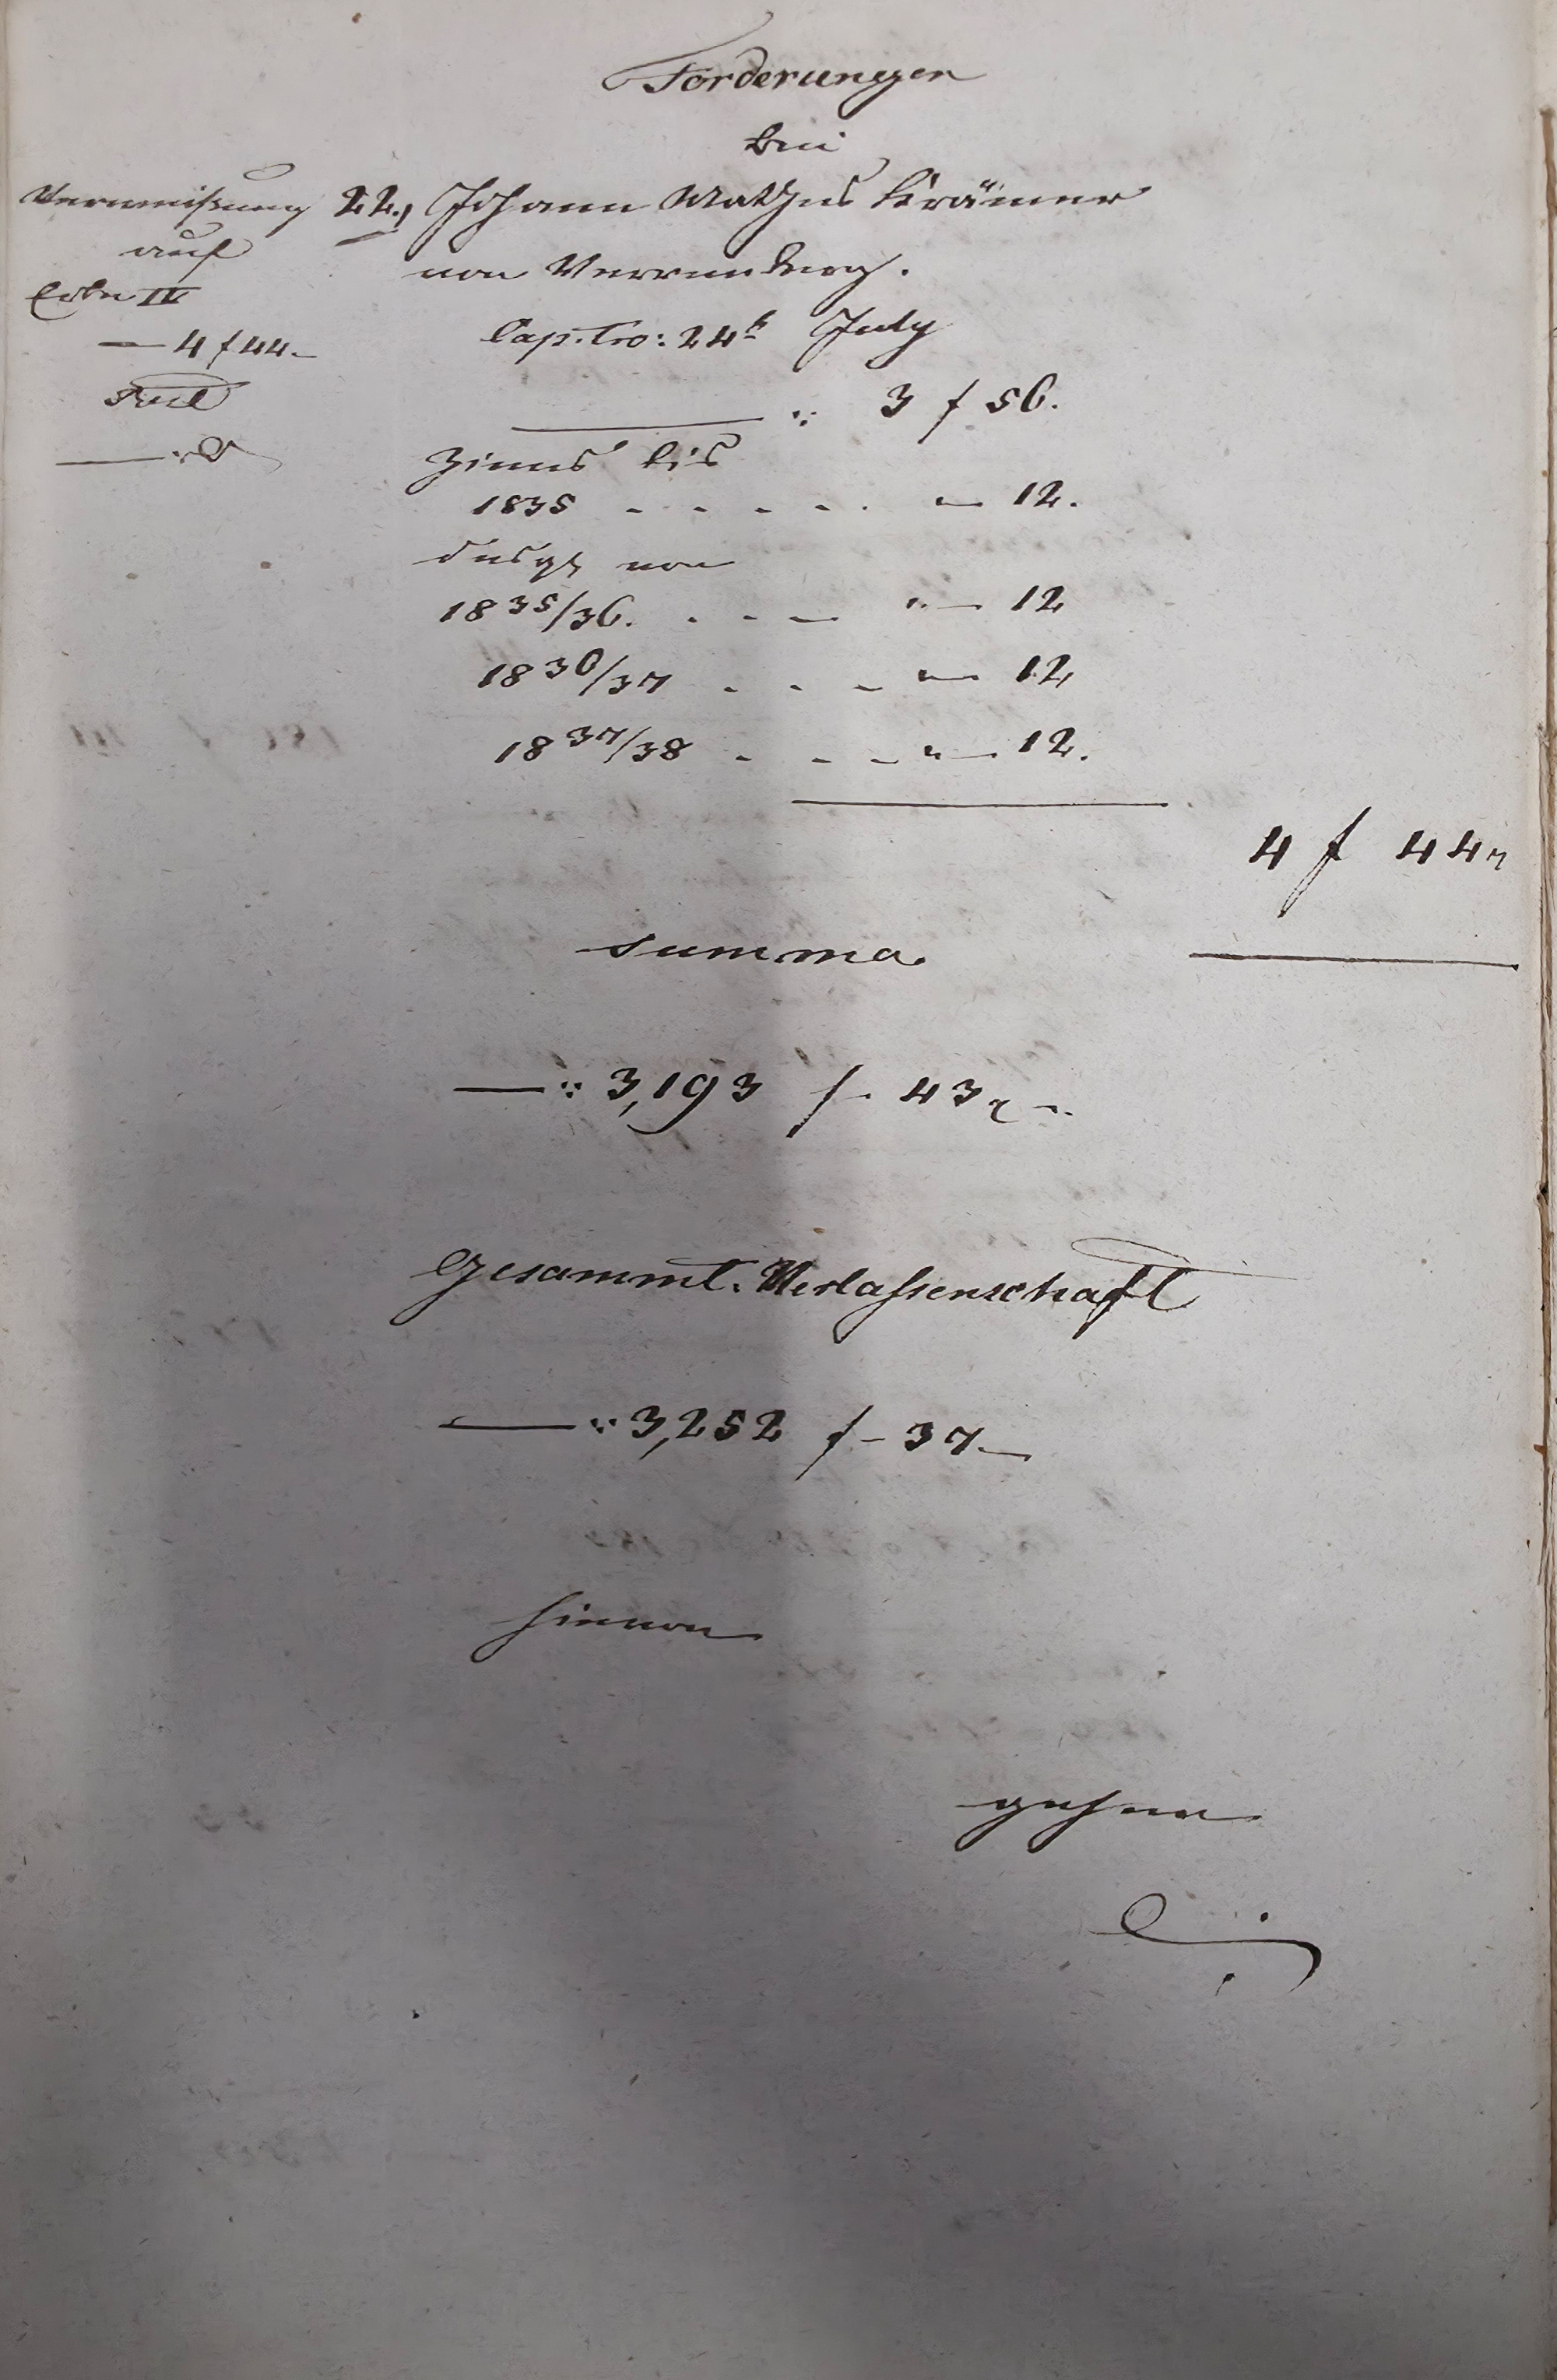 Forderungen
bei
Verweisung
auf
Erbe IV
— 4 f 44.—
22., Johann Mathes Krämer
von Verrenberg.
Cap. Tro: 24t July
—— :. 3 f 56.
Zinns bis
1835 - - - - . — 12.
desgl. von
18 35/36. . - - — " — 12
18 36/37 . - - " — 12
18 37/38 - - - " — 12.
4 f 44
Summa
—— : 3,193 f. 43 —.
Gesammt. Verlassenschaft
—— : 3,252 f – 37.—
hievon
gehen